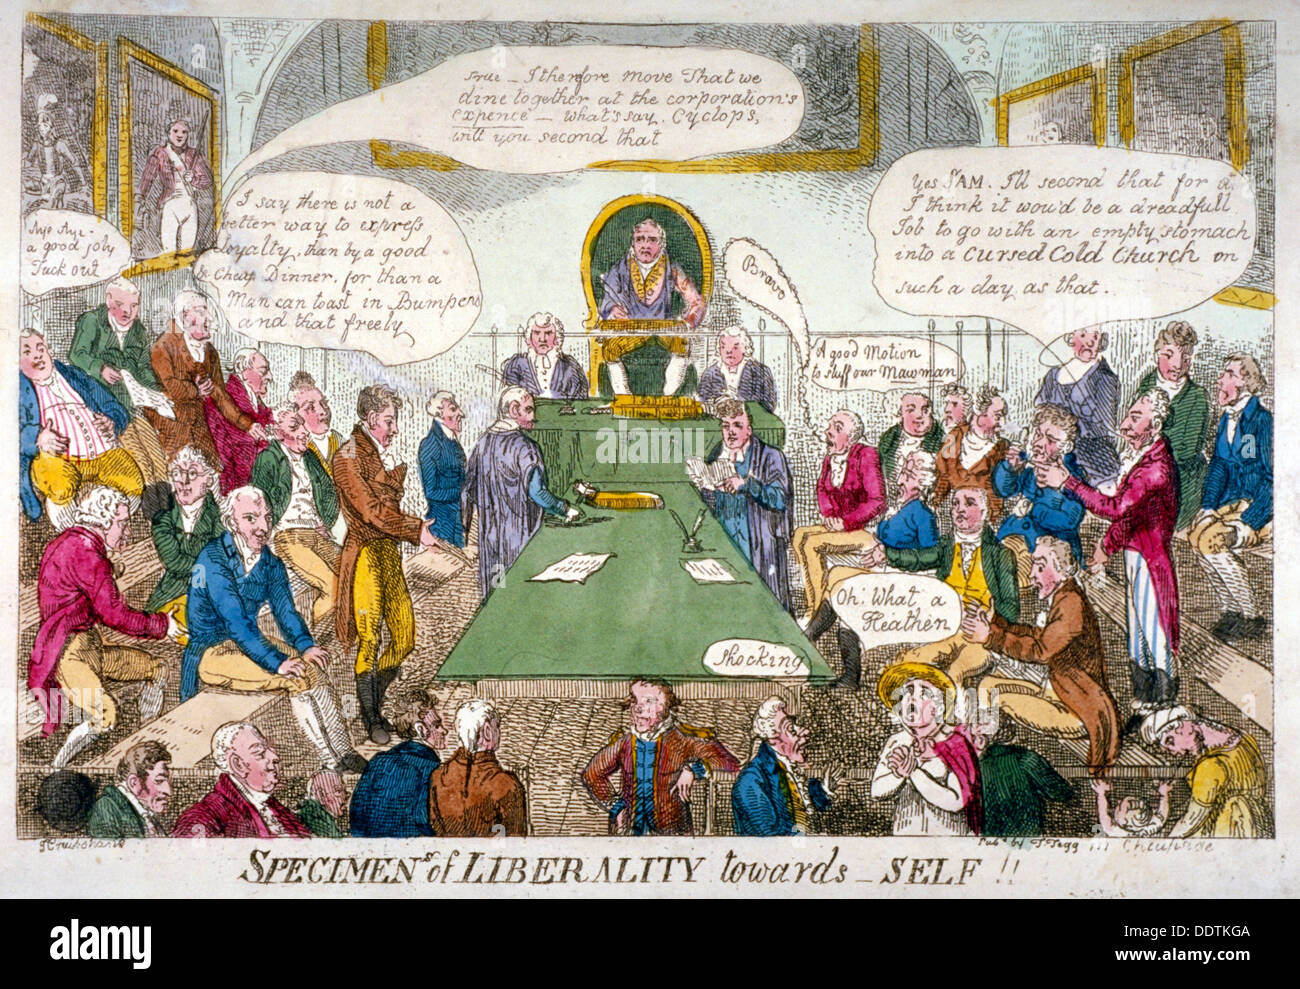 True _ I therfore move That we
dine together at the corporation's
expence _ what's say. Cyclops,
will you second that
Yes SAM. I'll second that for a,
I think it wou'd be a dreadfull
Job to go with an empty stomach
into a Cursed Cold Church on
such a day as that.
I say there is not a
better way to express
Loyalty, than by a good
& Cheap Dinner. for than a
Man can toast in Bumpers
and that freely
Aye Aye -
a good joby
Tuck out
Bravo
A good Motion
to stuff our Maw man
Oh! What a
Heathen
Shocking
Pubd by T. Tegg 111 Cheapside
SPECIMENs of LIBERALITY towards _ SELF !!
alamy
Image ID: DDTKGA
www.alamy.com